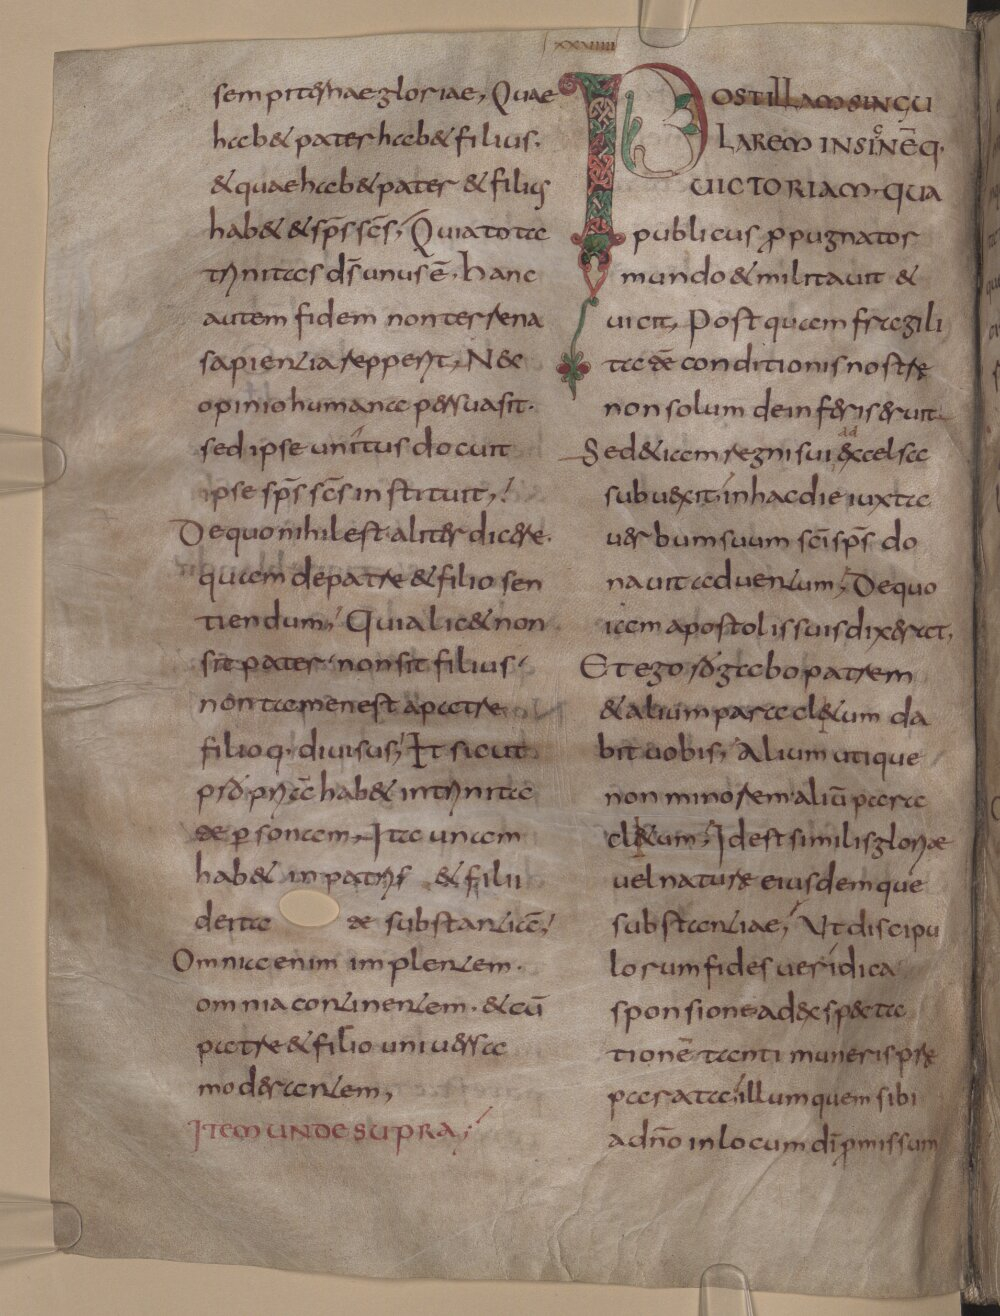 xxviiii
sempiternae gloriae, Quae
habet pater habet filius.
& quae habet pater & filius
habet & sp̄s sc̄s, Quia tota
trinitas d̄s unus ē. hanc
autem fidem non terrena
sapientia repperit, Nec
opinio humana persuasit.
sed ipse unitus docuit
ipse sp̄s sc̄s instituit,
De quo nihil est aliter dicere.
quam de patre & filio sen
tiendum, Quia licet non
sit pater. non sit filius.
non tamen est a patre
filioq. diuisus, Et sicut
propriā habet in trinita
te personam, Ita unam
habet in patris & filii
deita te substantiā,
Omnia enim implentem.
omnia continentem. & cū
patre & filio uniuersa
moderantem,
ITEM UNDE SUPRA,
POST ILLAM SINGU
LAREM INSIGNĒQ.
UICTORIAM. QUA
publicus ꝓpugnator
mundo & militauit &
uicit, Post quam fragili
tatē conditionis nostrę
non solum de inferis eruit
Sed etiam regni sui excelsa
subuexit, in hac die iuxta
uerbum suum sc̄i sp̄s do
nauit aduentum, De quo
iam apostolis suis dixerat,
Et ego rogabo patrem
& alium paracletum da
bit uobis, Alium utique
non minorem aliū para
cletum, Id est similis gloriae
uel naturę eiusdemque
substantiae, Ut discipu
lorum fides ueridica
sponsione ad expecta
tionē tanti muneris prę
parata. illum quem sibi
a dn̄o in locum d̄i ꝓmissum